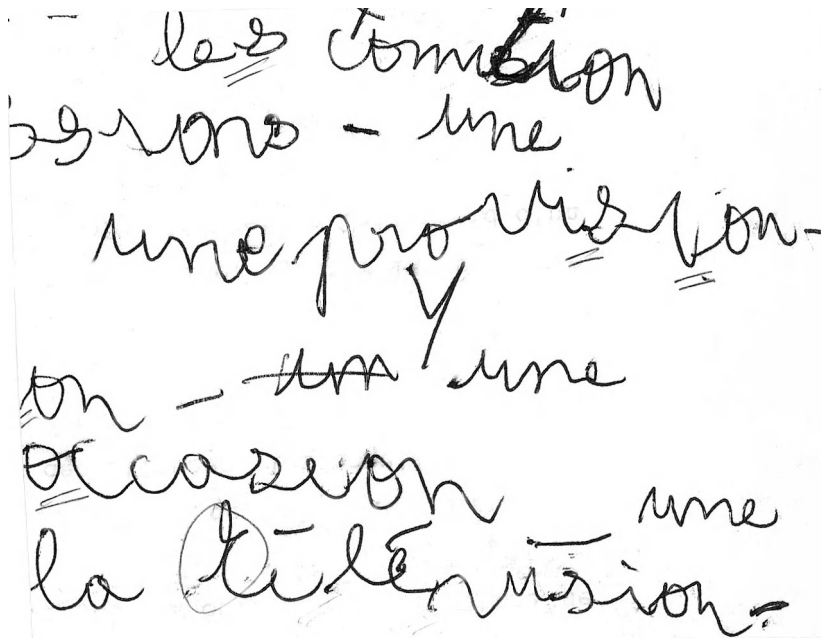 les
ssions - une
une provision -
on - une
occasion une
la télévision -